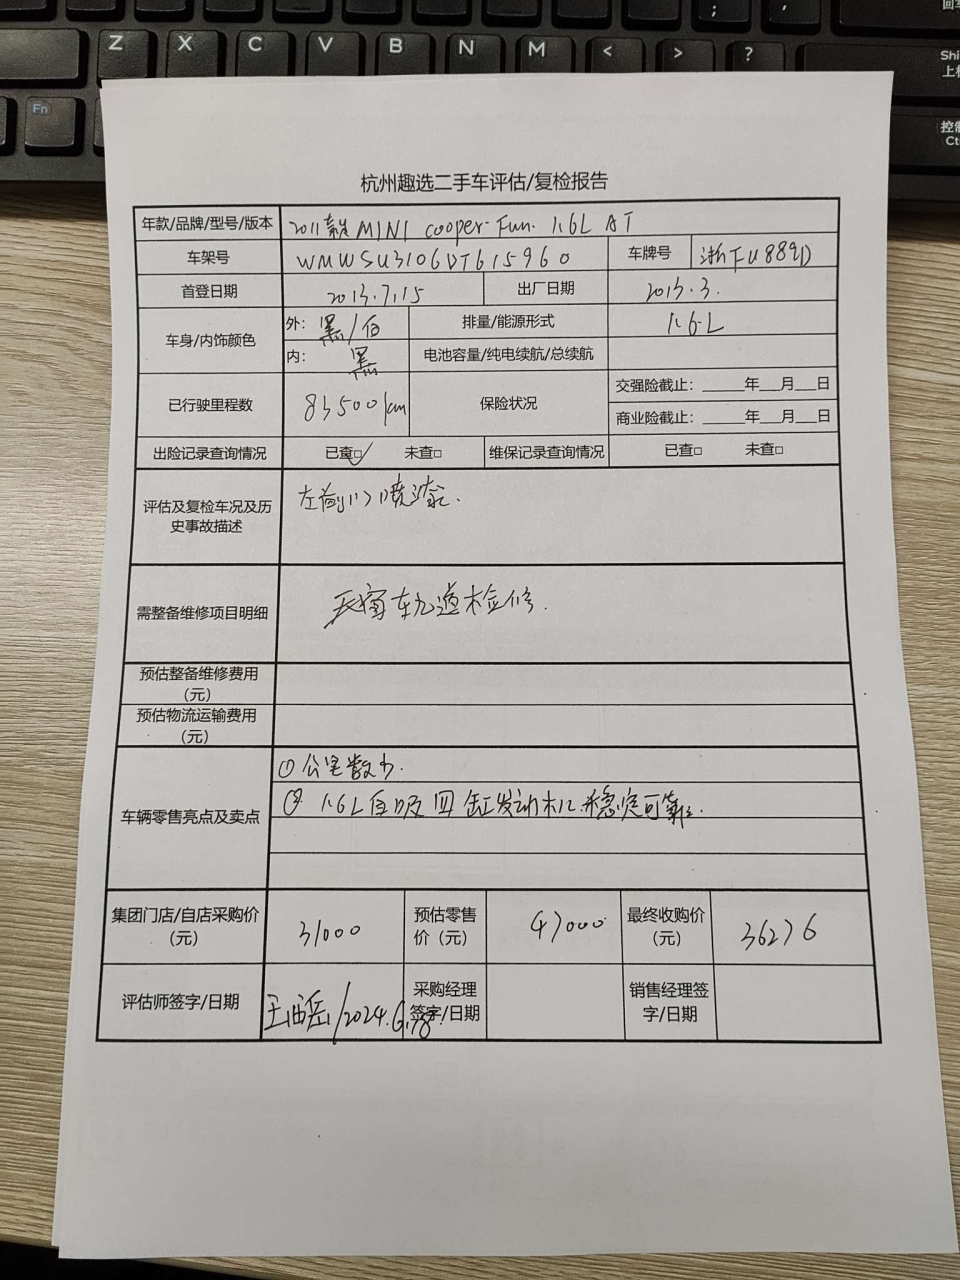 Z X C V B N M < > ?
; '
Fn
Shi
上档
控制
Ct
杭州趣选二手车评估/复检报告
年款/品牌/型号/版本 2011款 MINI cooper Fun 1.6L AT
车架号 WMWSU3106DT615960 车牌号
首登日期 2013.7.15 出厂日期 2013.3.
车身/内饰颜色 外: 黑/白 排量/能源形式 1.6L
内: 黑 电池容量/纯电续航/总续航
已行驶里程数 83500km 保险状况 交强险截止: 年 月 日
商业险截止: 年 月 日
出险记录查询情况 已查□ 未查□ 维保记录查询情况 已查□ 未查□
评估及复检车况及历
史事故描述
左前门喷漆.
需整备维修项目明细 天窗轨道检修.
预估整备维修费用
(元)
预估物流运输费用
(元)
车辆零售亮点及卖点
①公里数少.
② 1.6L自吸四缸发动机.稳定可靠.
集团门店/自店采购价
(元)
31000
预估零售
价(元)
47000
最终收购价
(元)
36276
评估师签字/日期 /2024.6.18.
采购经理
签字/日期
销售经理签
字/日期